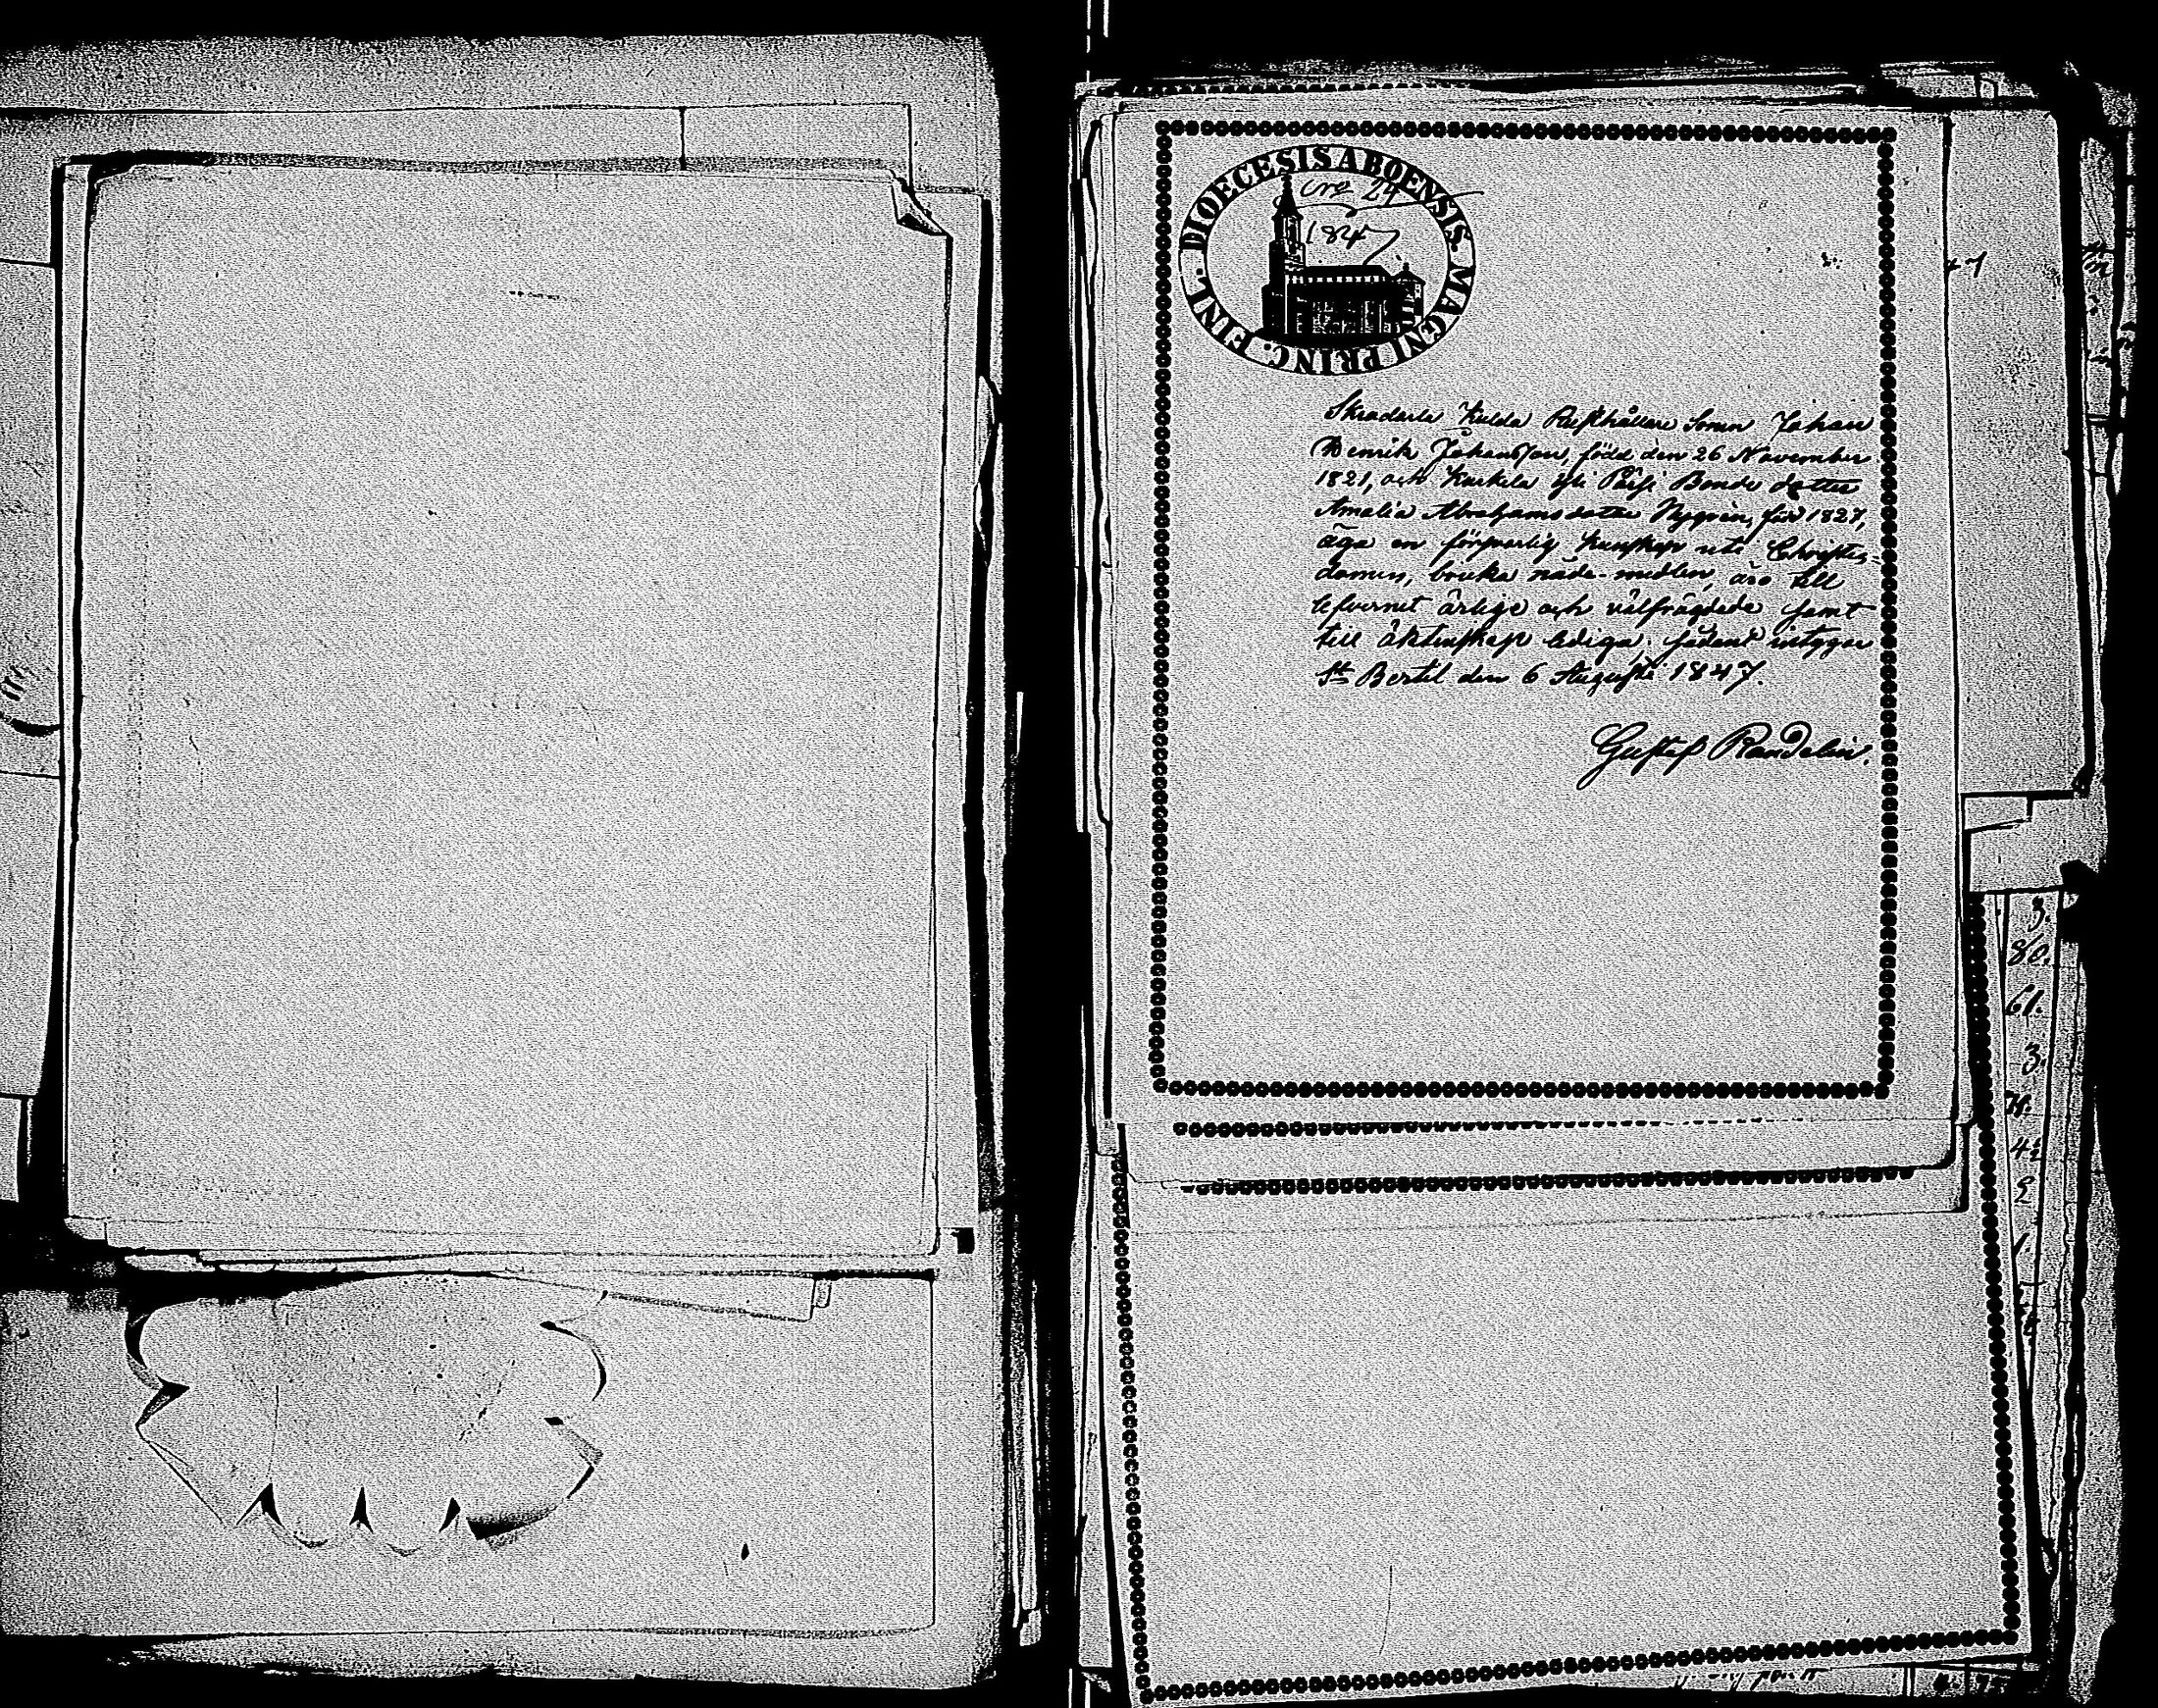 DIOECESIS ABOENSIS. MAGNI PRINC. FINL.
No 24
1847
Kulda Rusthållare Sonen Johan
Henrik Johansson, född den 26 November
1821, och Kurkela Bonde dotter
Amalia Abrahamsdotter Nygrén, född 1827,
äga en försvarlig kunskap uti Christen-
domen, bruka nåde-medlen, äro till
lefvernet ärlige och välfrägdade samt
till äktenskap ledige; sådant intygar
St Bertel den 6 Augusti 1847.
Gustaf Randelin.
47
3.
80.
61.
3.